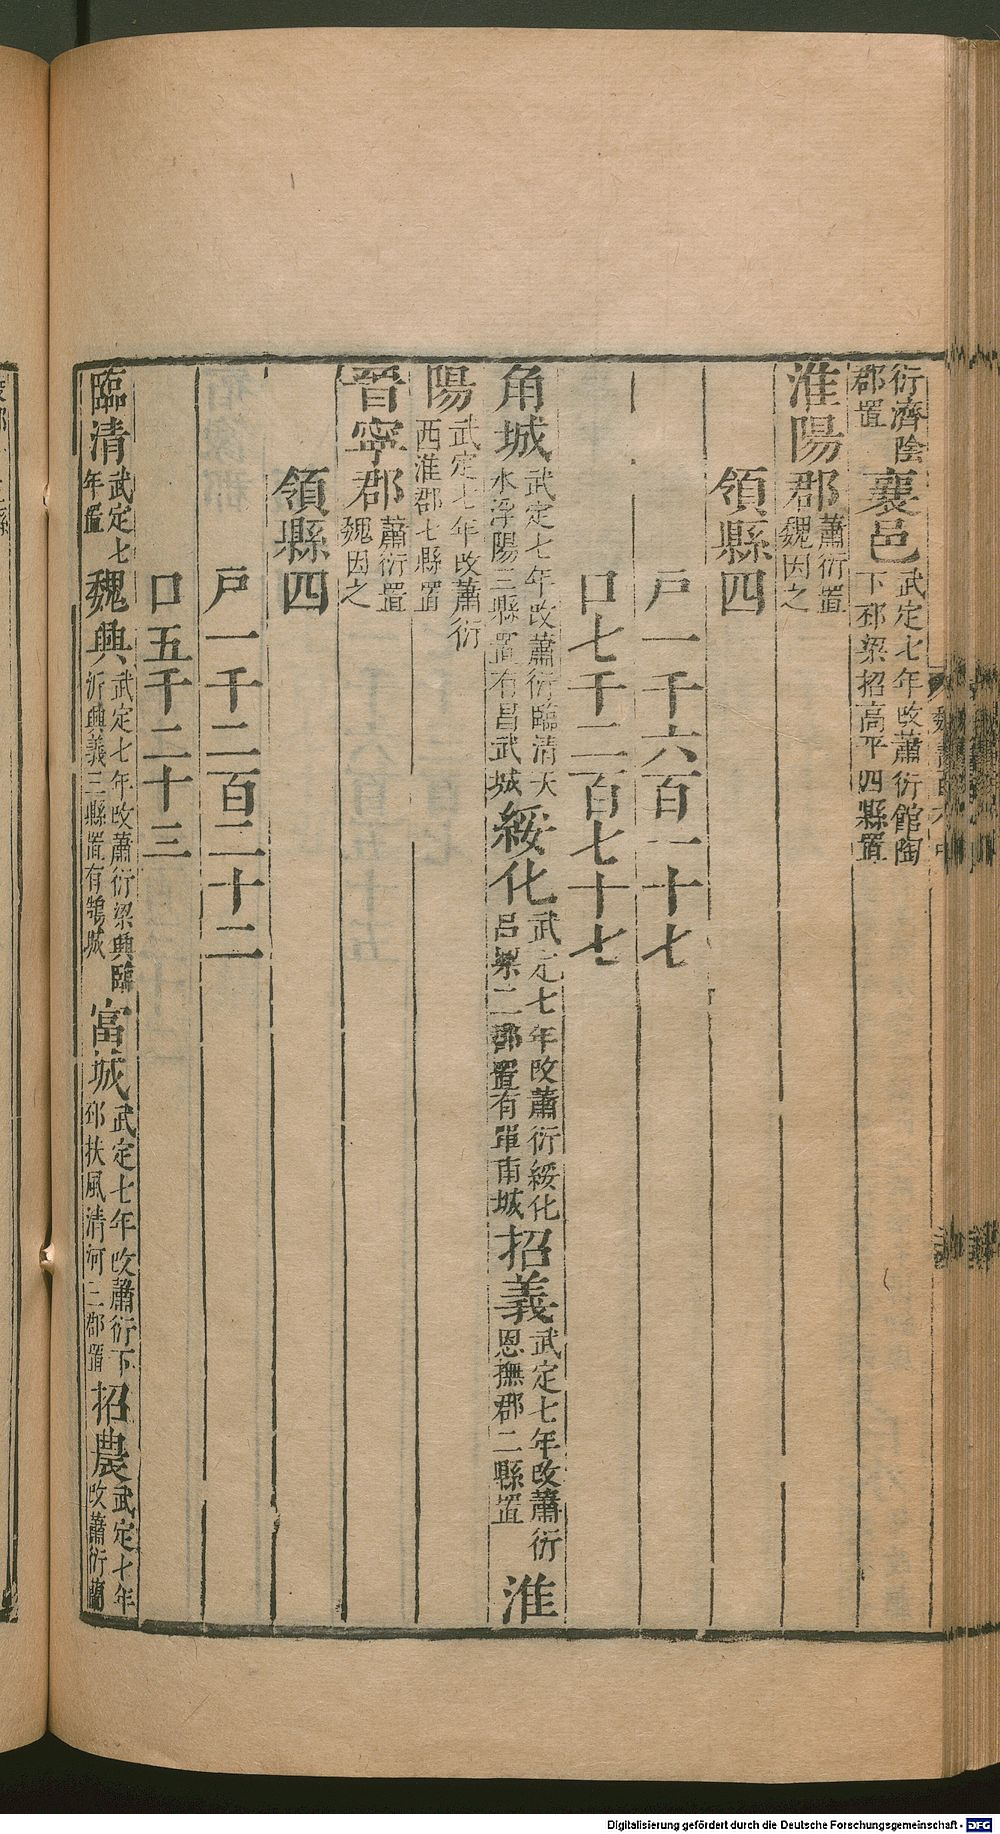 衍濟陰郡置襄邑武定七年改蕭衍館陶下邳梁招高平四縣置
淮陽郡蕭衍置魏因之
領縣四
戶一千六百一十七
口七千二百七十七
角城武定七年改蕭衍臨清天水浮陽三縣置有昌武城綏化武定七年改蕭衍綏化呂梁二郡置有單南城招義武定七年改蕭衍恩撫郡二縣置淮
陽武定七年改蕭衍西淮郡七縣置
晉寧郡蕭衍置魏因之
領縣四
戶一千二百二十二
口五千二十三
臨清武定七年置魏興武定七年改蕭衍梁興臨沂興義三縣置有鵠城富城武定七年改蕭衍下邳扶風清河三郡置招農武定七年改蕭衍蘭
Digitalisierung gefördert durch die Deutsche Forschungsgemeinschaft - DFG